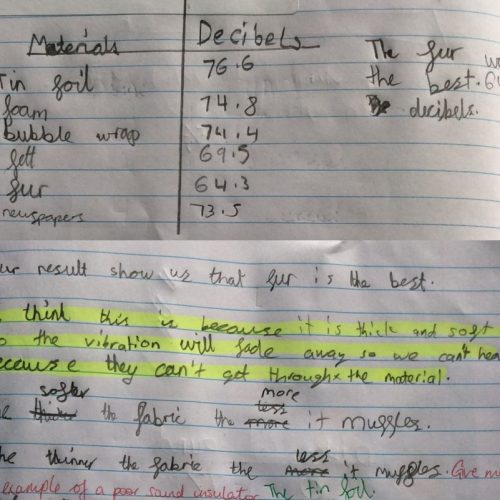 Materials Decibels
Tin foil 76.6
foam 74.8
bubble wrap 74.4
felt 69.5
fur 64.3
newspapers 73.5
The fur
the best.
decibels.
ur result show us that fur is the best.
think this is because it is thick and soft
the vibration will fade away so we can't hea
ecause they can't get through the material.
softer more
thicker the fabric the less more it muggles.
he thinner the fabric the less more it muggles. Give m
example of a poor sound insulator The tin foil.